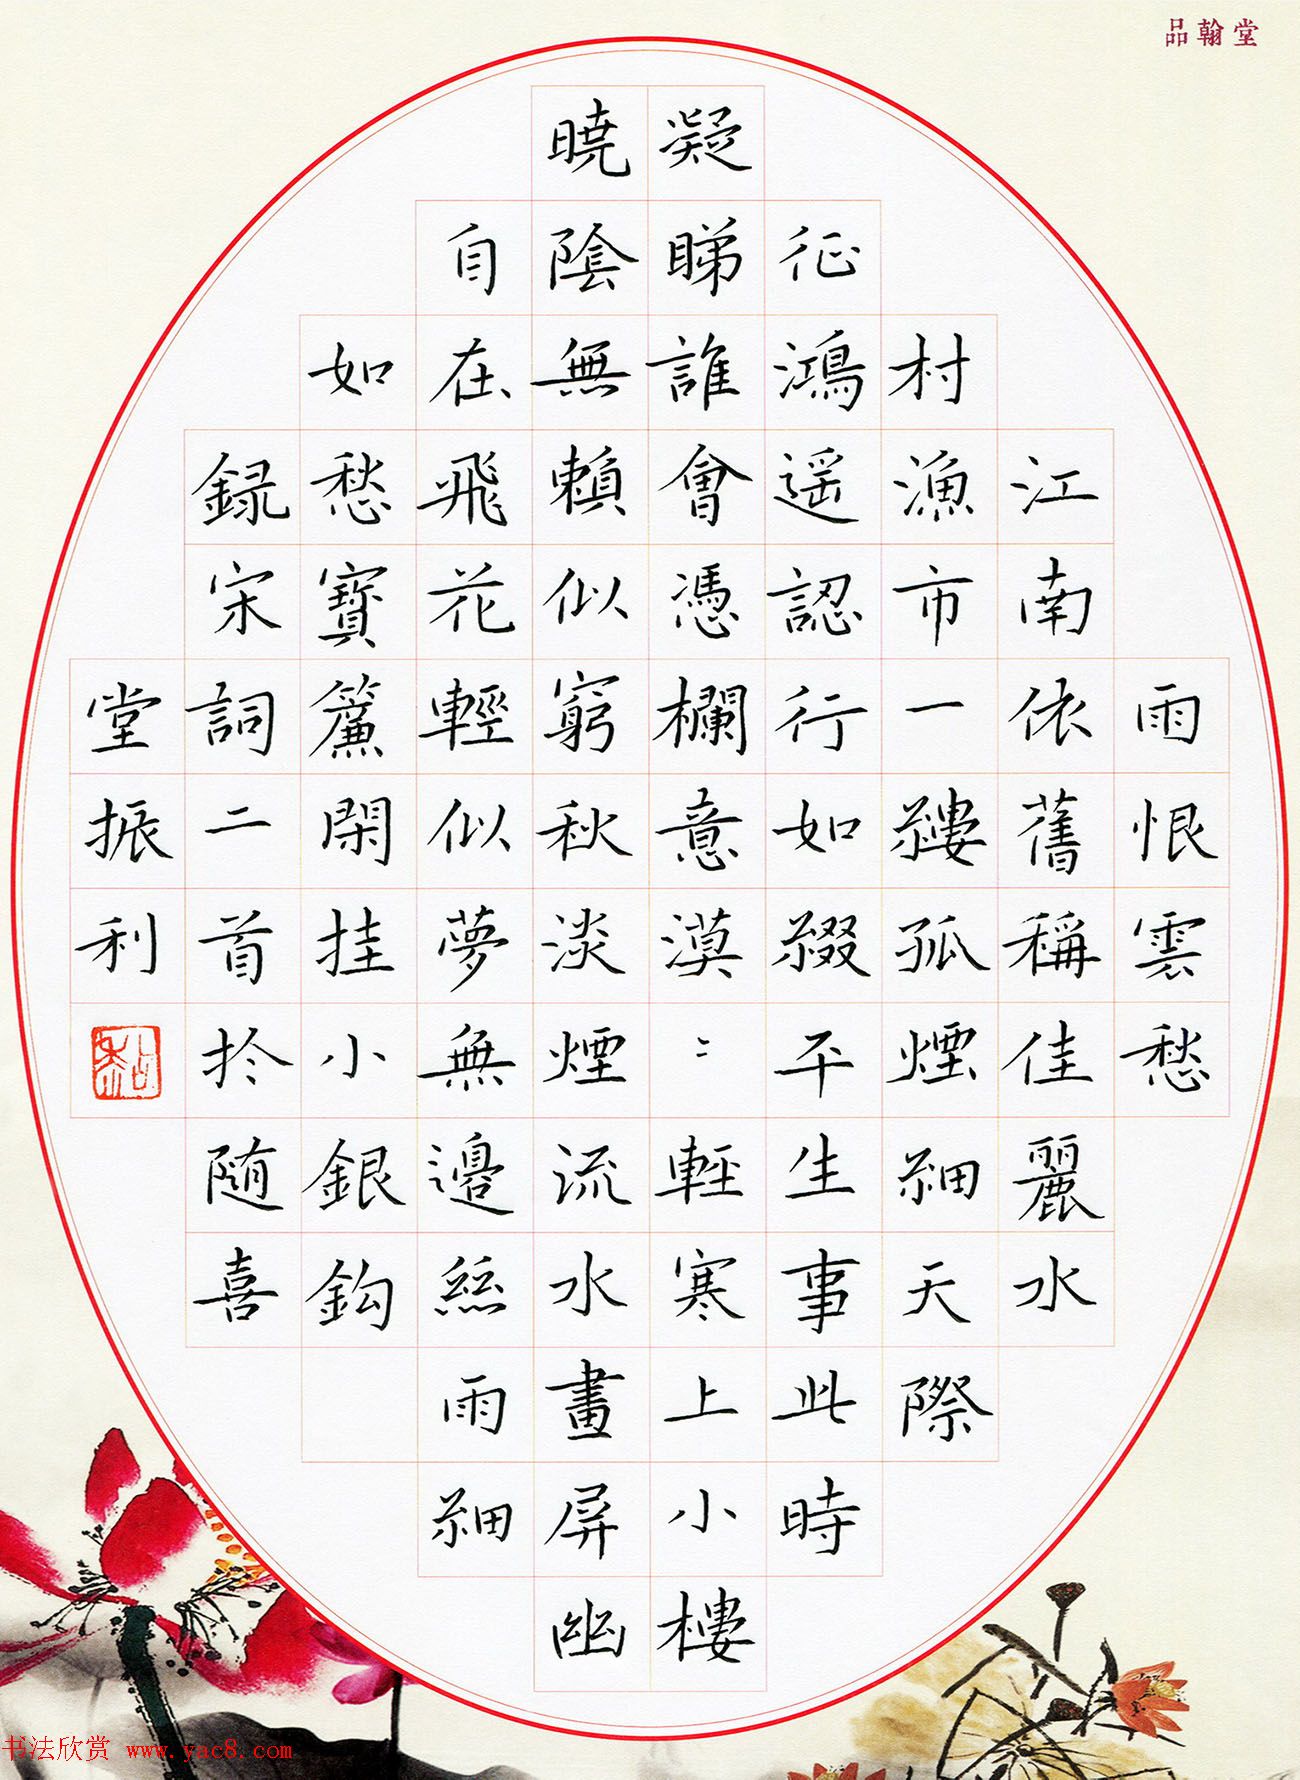 品翰堂
雨恨雲愁
江南依舊稱佳麗水
村漁市一縷孤煙細天際
征鴻遥認行如綴平生事此時
凝睇誰會憑欄意漠〻輕寒上小樓
曉陰無賴似窮秋淡煙流水畫屏幽
自在飛花輕似夢無邊絲雨細
如愁寶簾閑挂小銀鈎
録宋詞二首於隨喜
堂振利
书法欣赏 www.yac8.com